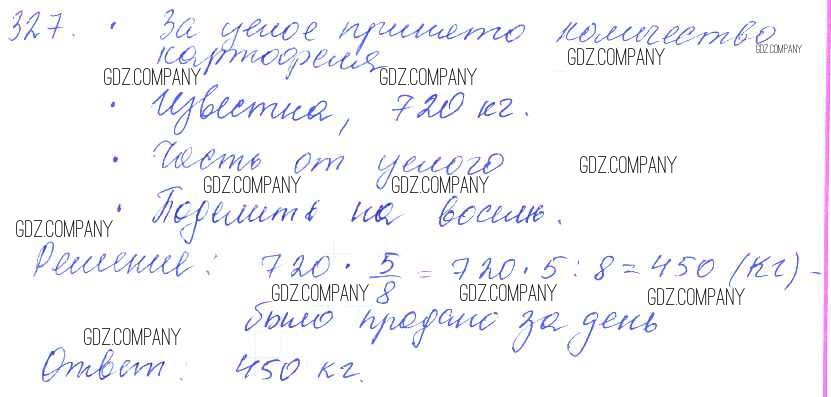 327. • За целое принято количество
картофеля
GDZ.COMPANY
GDZ.COMPANY GDZ.COMPANY GDZ.COMPANY
• Известна, 720 кг.
• Часть от целого
GDZ.COMPANY
GDZ.COMPANY GDZ.COMPANY
• Поделить на восемь.
GDZ.COMPANY
Решение: 720 · 5/8 = 720 · 5 : 8 = 450 (кг) -
GDZ.COMPANY GDZ.COMPANY GDZ.COMPANY
было продано за день
GDZ.COMPANY
Ответ: 450 кг.